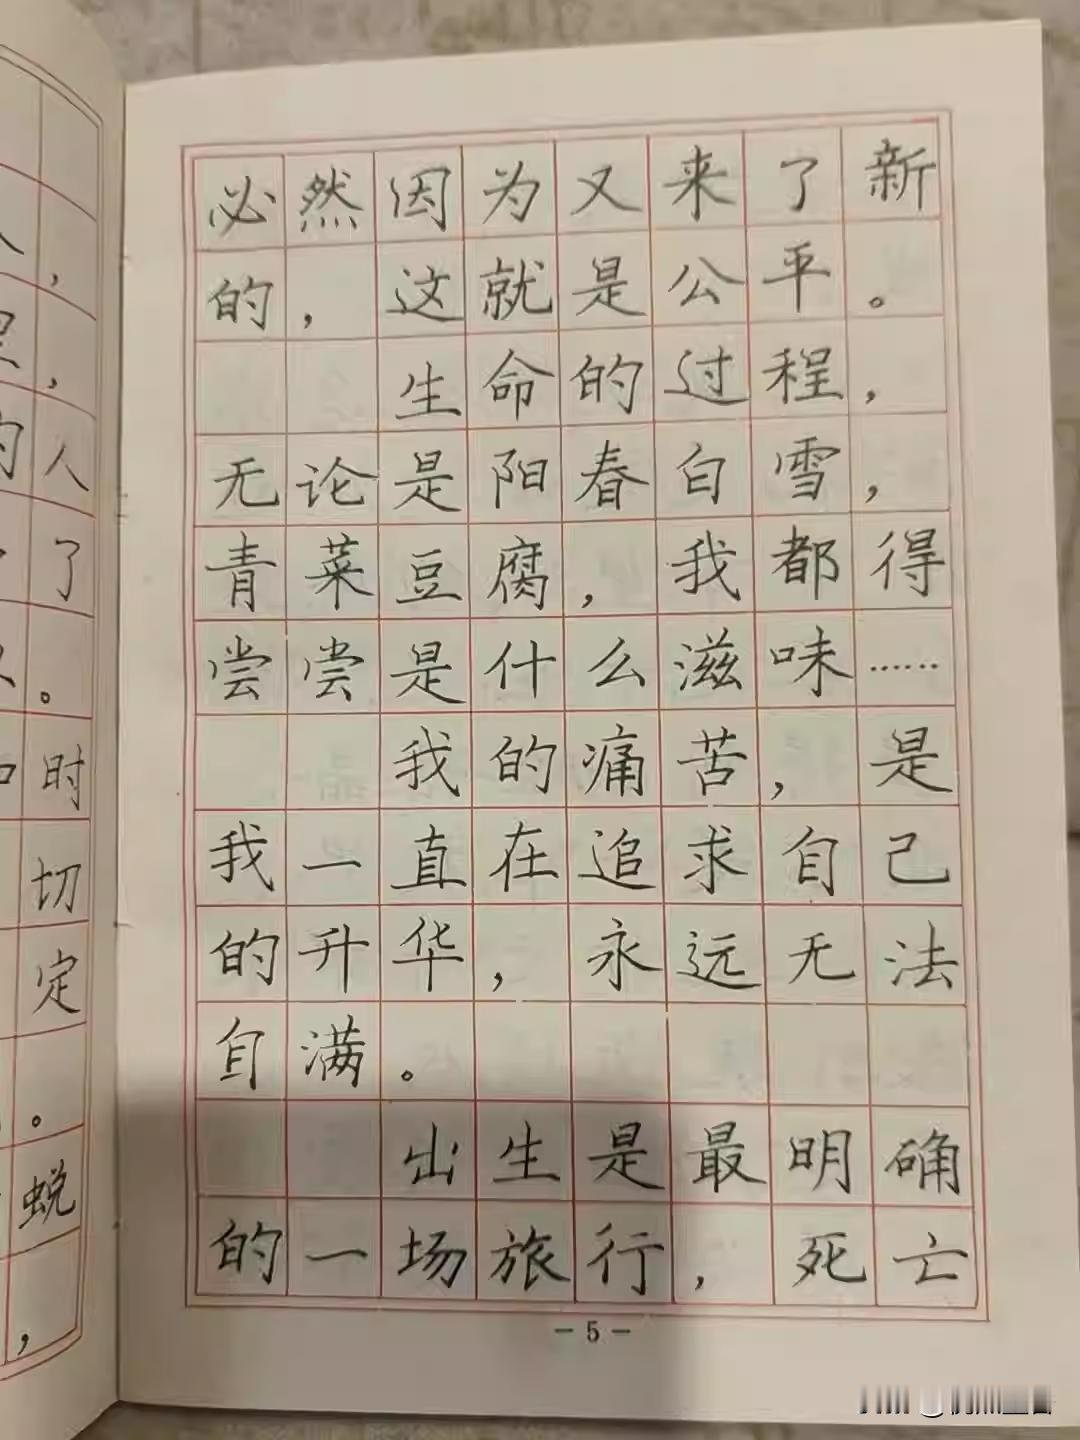 必然因为又来了新
的，这就是公平。
生命的过程，
无论是阳春白雪，
青菜豆腐，我都得
尝尝是什么滋味……
我的痛苦，是
我一直在追求自己
的升华，永远无法
自满。
出生是最明确
的一场旅行，死亡
-5-
人，
，
人
了
。
时
切
定
。
蜕
，